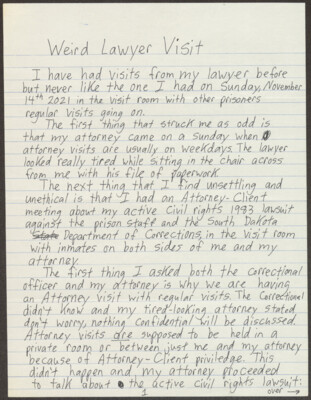 Weird Lawyer Visit
I have had visits from my lawyer before
but never like the one I had on Sunday, November
14th 2021 in the visit room with other prisoners
regular visits going on.
The first thing that struck me as odd is
that my attorney came on a sunday when
attorney visits are usually on weekdays. The lawyer
looked really tired while sitting in the chair across
from me with his file of paperwork.
The next thing that I find unsettling and
unethical is that I had an Attorney-Client
meeting about my active Civil rights 1983 lawsuit
against the prison staff and the South Dakota
Department of Corrections, in the visit room
with inmates on both sides of me and my
attorney.
The first thing I asked both the correctional
officer and my attorney is why we are having
an Attorney visit with regular visits. The Correctional
didn't know and my tired-looking attorney stated,
don't worry, nothing confidential will be discussed.
Attorney visits are supposed to be held in a
private room or between just me and my attorney
because of Attorney-Client priviledge. This
didn't happen and my attorney proceeded
to talk about the active civil rights lawsuit:
1
over →